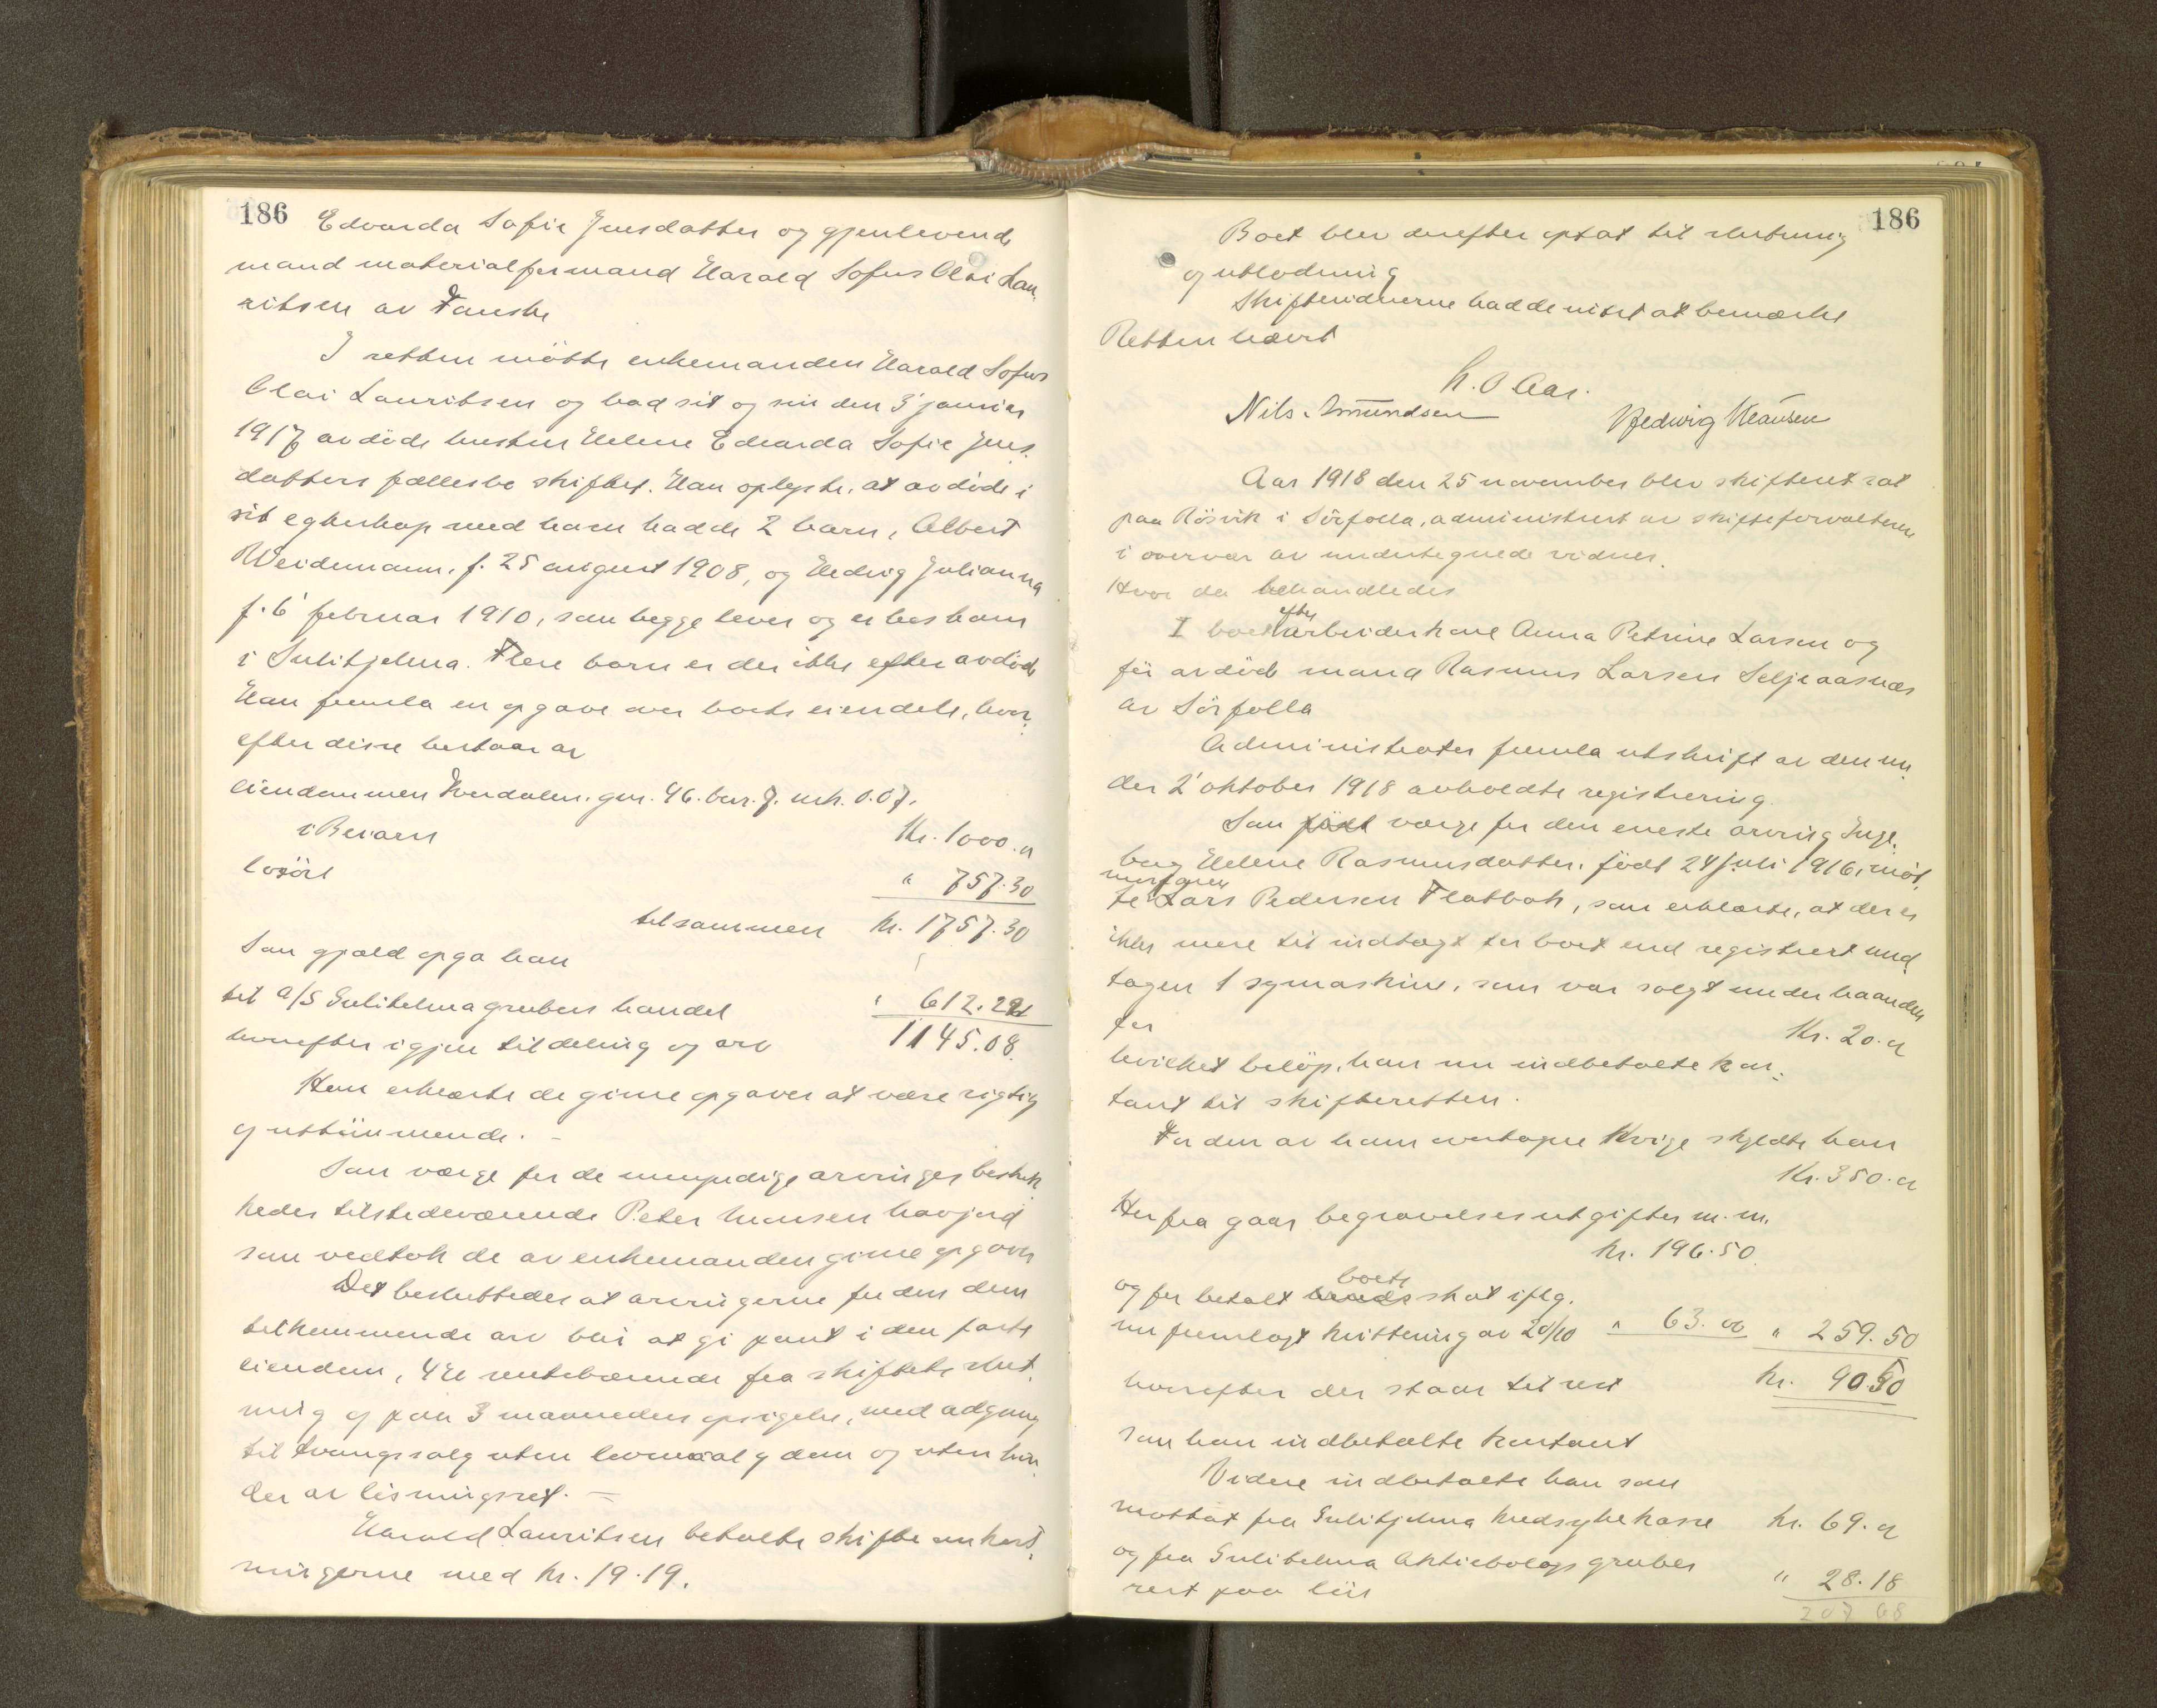 186
Edvarda Sofie Jensdatter og gjenlevende
mand materialformand Harald Sofus Olai Lau-
ritsen av Fauske
I retten møtte enkemanden Harald Sofus
Olai Lauritsen og bad sit og sin den 3' januar
1917 avdøde hustru Helene Edvarda Sofie Jens-
datters fællesbo skiftet. Han oplyste, at avdøde i
sit egteskap med ham hadde 2 barn, Albert
Weidemann, f. 25 august 1908, og Hedvig Julianna
f. 6' februar 1910, som begge lever og er hos ham
i Sulitjelma. Flere barn er der ikke efter avdøde
Han fremla en opgave over boets eiendele, hvor-
efter disse bestaar av
eiendommen Kverdalen, gnr. 46. bnr. 7. mrk. 0.07.
i Beiarn Kr. 1000.-
løsøre " 757.30
tilsammen kr. 1757.30
Som gjæld opga han
til A/S Sulitelma grubers handel " 612.22
hvorefter igjen til deling og arv 1145.08.
Han erklærte de givne opgaver at være rigtig
og uttømmende. -
Som værge for de umyndige arvinger beskik-
kedes tilstedeværende Peter Hansen
som vedtok de av enkemanden givne opgaver
Det besluttedes at arvingerne for den dem
tilkommende arv blir at gi pant i den faste
eiendom, 4% rentebærende fra skiftets slut-
ning og paa 3 maaneders opsigelse, med adgang
til tvangssalg uten lovmaal og dom og uten hin-
der av løsningsret. -
Harald Lauritsen betalte skifteomkost-
ningerne med kr. 19.19.
186
Boet blev derefter optat til slutning
og utlodning
Skiftevidnerne hadde intet at bemærke
Retten hævet
K. O. Aas.
Nils Amundsen Hedvig Klausen
Aar 1918 den 25 november blev skifteret sat
paa Røsvik i Sørfolla, administrert av skifteforvalteren
i overvær av undertegnede vidner.
Hvor da behandledes
I boet efter arbeiderkone Anna Petrine Larsen og
før avdøde mand Rasmus Larsen Seljeaasnes
av Sørfolla
Administrator fremla utskrift av den un-
der 2' oktober 1918 avholdte registrering.
Som født værge for den eneste arving Inge-
borg Helene Rasmusdatter, født 24 juli 1916, møt-
te morfaren Lars Pedersen Flatbak, som erklærte, at der er
ikke mere til indtægt for boet end registrert und-
tagen 1 symaskine, som var solgt under haanden
for Kr. 20.-
hvilket beløp, han nu indbetalte kon-
tant til skifteretten.
For den av ham overtagne Kvige skyldte han
Kr. 350.-
Herfra gaar begravelsesutgifter m.m.
kr. 196.50
og for betalt boets skat ifølg.
nu fremlagt kvittering av 20/10 " 63.00 " 259.50
hvorefter der staar til rest kr. 90.50
som han indbetalte kontant
Videre indbetalte han som
mottat fra Sulitjelma kredssykekasse kr. 69.-
og fra Sulitelma Aktiebolags gruber
rest paa løn " 28.18
207 68